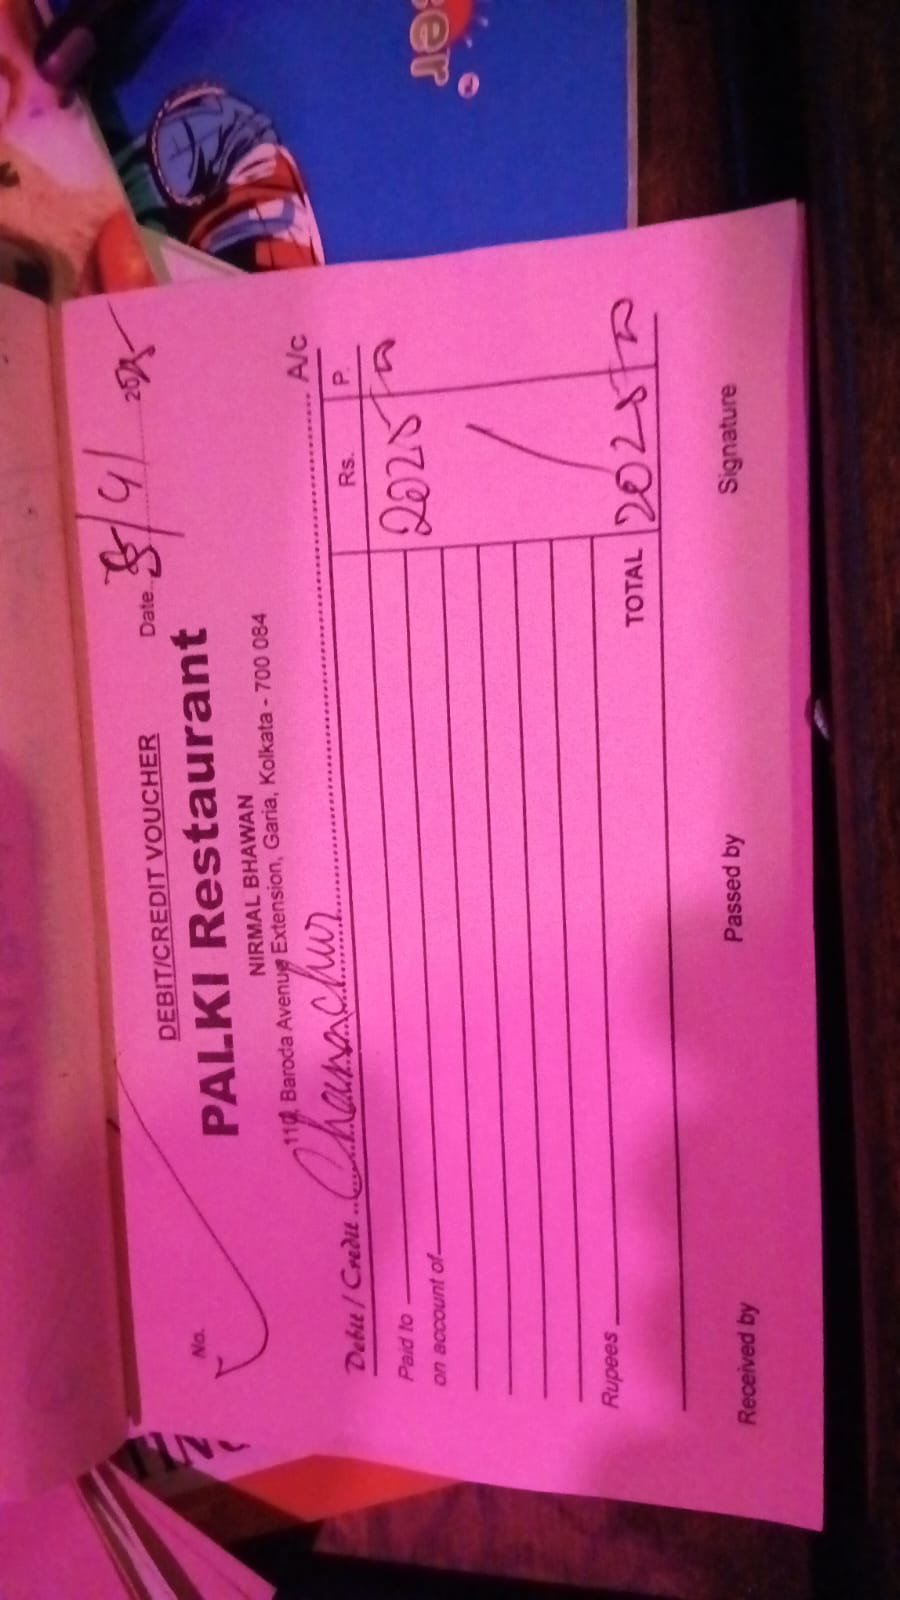 er
®
No.
DEBIT/CREDIT VOUCHER
Date 5/4/ 2025
PALKI Restaurant
NIRMAL BHAWAN
110, Baroda Avenue Extension, Garia, Kolkata - 700 084
Debit / Credit Chanachur A/c
Rs. P.
Paid to 2025
on account of
Rupees TOTAL 2025
Received by Passed by Signature